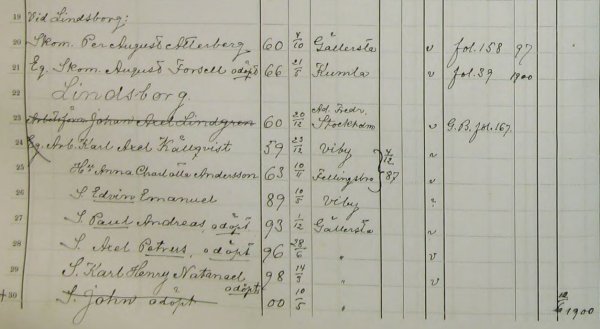 19 Vid Lindsborg:
20 Skom. Per August Atterberg 60 4/10 Gällersta v fol. 158 97
21 Eg. Skom. August Forsell odöpt 66 21/8 Kumla v fol. 39 1900
22 Lindsborg
Ad. Fredr.
23 Johan Axel Lindgren 60 20/12 Stockholm v G.B. fol. 167.
24 Eg. Arb. Karl Axel Källqvist 59 23/12 Viby 4/12 87 v
25 Hu Anna Charlotta Andersson 63 10/8 Fellingsbro v
26 S. Edvin Emanuel 89 10/8 Viby
27 S. Paul Andreas, odöpt 93 1/12 Gällersta v
28 S. Axel Petrus, odöpt 96 28/6 " v
29 S. Karl Henry Natanael odöpt 98 14/3 " v
+30 S. John odöpt 00 10/5 " 12/6 1900